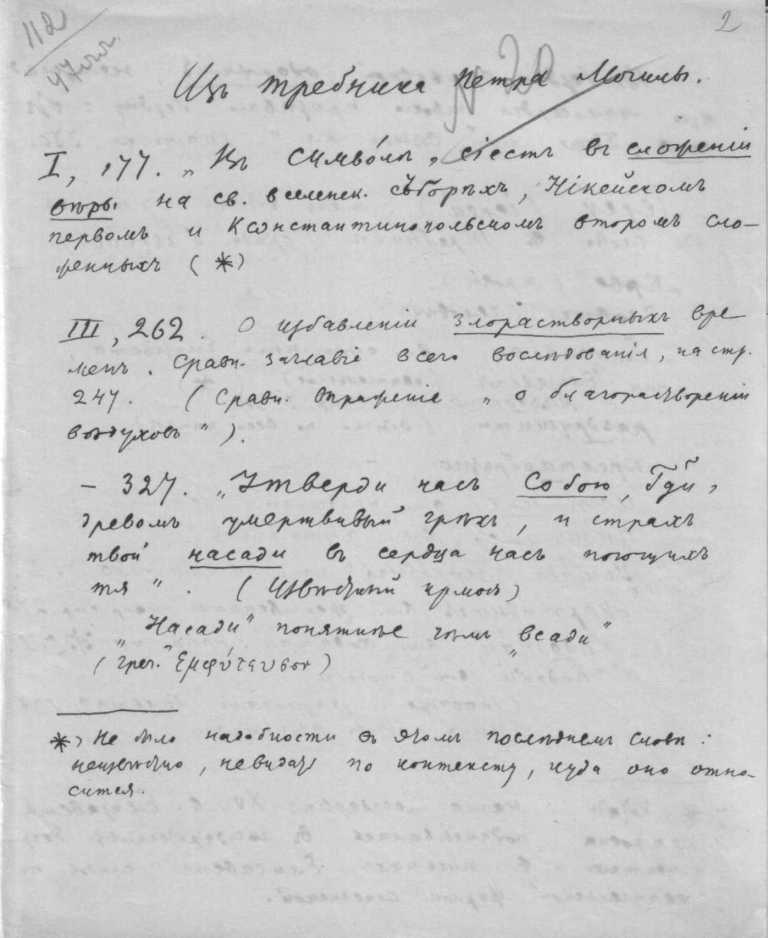 112
47
2
№ 20
Изъ требника Петра Могилы.
I, 177. „Въ Символѣ, сіесть въ сложеніи
вѣры на св. вселенск. съборѣхъ, Нікейскомъ
первомъ и Константинопольскомъ второмъ сло-
женныхъ (*)
III, 262. О избавленіи злорастворныхъ вре-
менъ. Сравн. заглавіе всего послѣдованія, на стр.
247. (Сравн. выраженіе „о благорастворенiи
воздуховъ“).
— 327. „Утверди насъ Собою, Гди,
древомъ умертвивый грѣхъ, и страхъ
твой насади въ сердца насъ поющихъ
тя“. (Извѣстный ирмосъ)
„Насади“ понятнѣе чѣмъ „всади“
(греч. ἐμφύτευσον)
*) Не было надобности въ этомъ послѣднемъ словѣ:
неизвѣстно, не видать по контексту, куда оно отно-
сится.